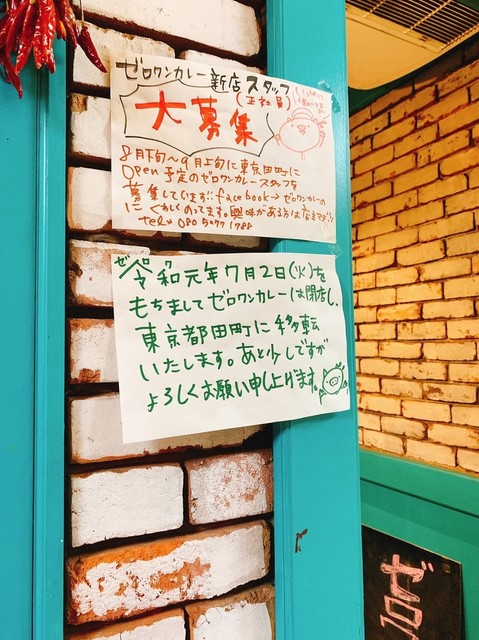 ゼロワンカレー新店スタッフ
(正社員)
大募集
8月下旬〜9月上旬に東京田町に
open予定のゼロワンカレースタッフを
募集しています!! facebook→ゼロワンカレーの
にくわしくのってます。興味がある方は
tel→ 080 5077 1788
ゼロワ
令和元年7月2日(火)を
もちましてゼロワンカレーは閉店し、
東京都田町に移転
いたします。あと少しですが
よろしくお願い申し上げます。
ゼロ